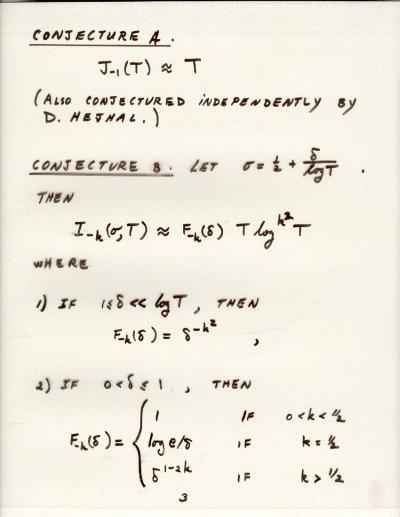 CONJECTURE A.
J₋₁(T) ≈ T
(ALSO CONJECTURED INDEPENDENTLY BY
D. HEJHAL.)
CONJECTURE B. LET σ = 1/2 + δ/log T .
THEN
I₋ₖ(σ,T) ≈ F₋ₖ(δ) T log^{k²} T
WHERE
1) IF 1 ≤ δ << log T , THEN
F₋ₖ(δ) = δ^{-k²} ,
2) IF 0 < δ ≤ 1 , THEN
F₋ₖ(δ) = { 1 IF 0 < k < 1/2
log e/δ IF k = 1/2
δ^{1-2k} IF k > 1/2
3